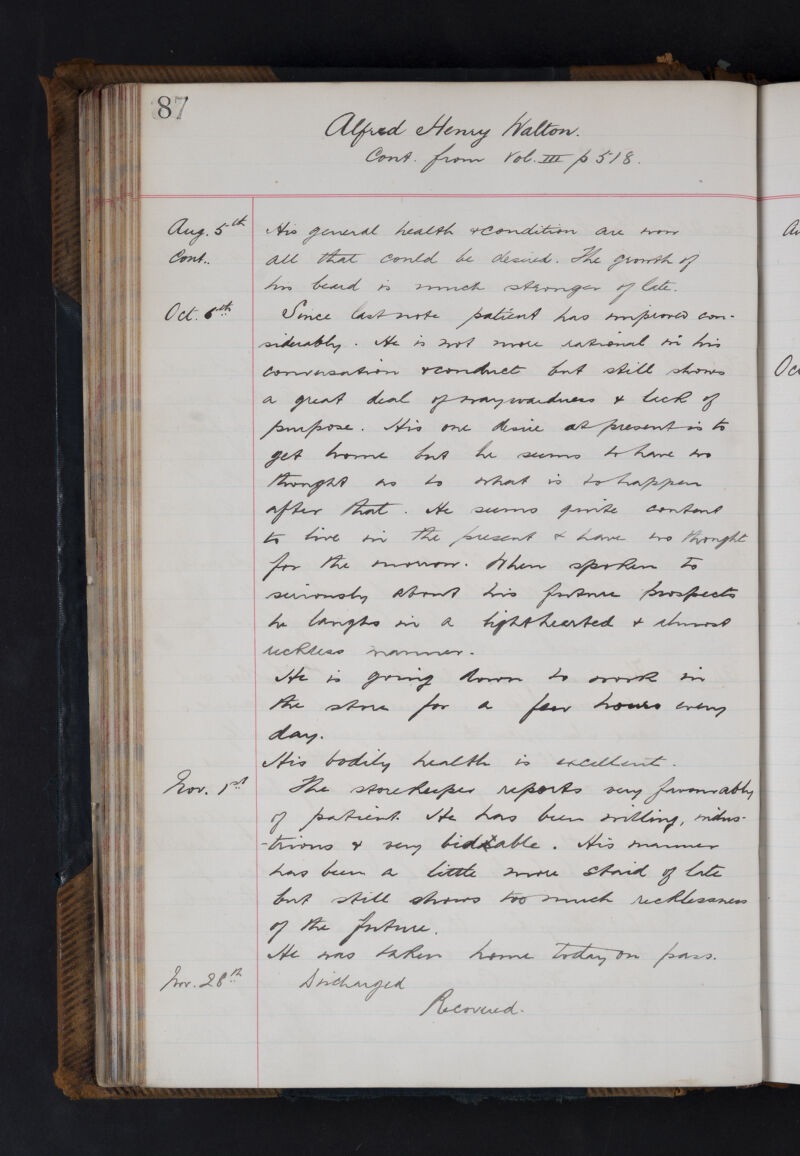 87
Alfred Henry Walton.
Cont. from Vol. III p 518.
Aug. 5th His general health & condition are now
Cont. all that could be desired. The growth of
his beard is much stronger of late.
Oct. 6th Since last note patient has improved con-
siderably. He is not more rational in his
conversation & conduct but still shows
a great deal of waywardness & lack of
purpose. His one desire at present is to
get home but he seems to have no
thought as to what is to happen
after that. He seems quite content
to live in the present & have no thought
for the morrow. When spoken to
seriously about his future prospects
he laughs in a lighthearted & almost
reckless manner.
He is going down to work in
the store for a few hours every
day.
His bodily health is excellent.
Nov. 1st The storekeeper reports very favourably
of patient. He has been willing, indus-
-trious & very biddable. His manner
has been a little more staid of late
but still shows too much recklessness
of the future.
He was taken home today on pass.
Nov. 28th Discharged
Recovered.
Au
Oc